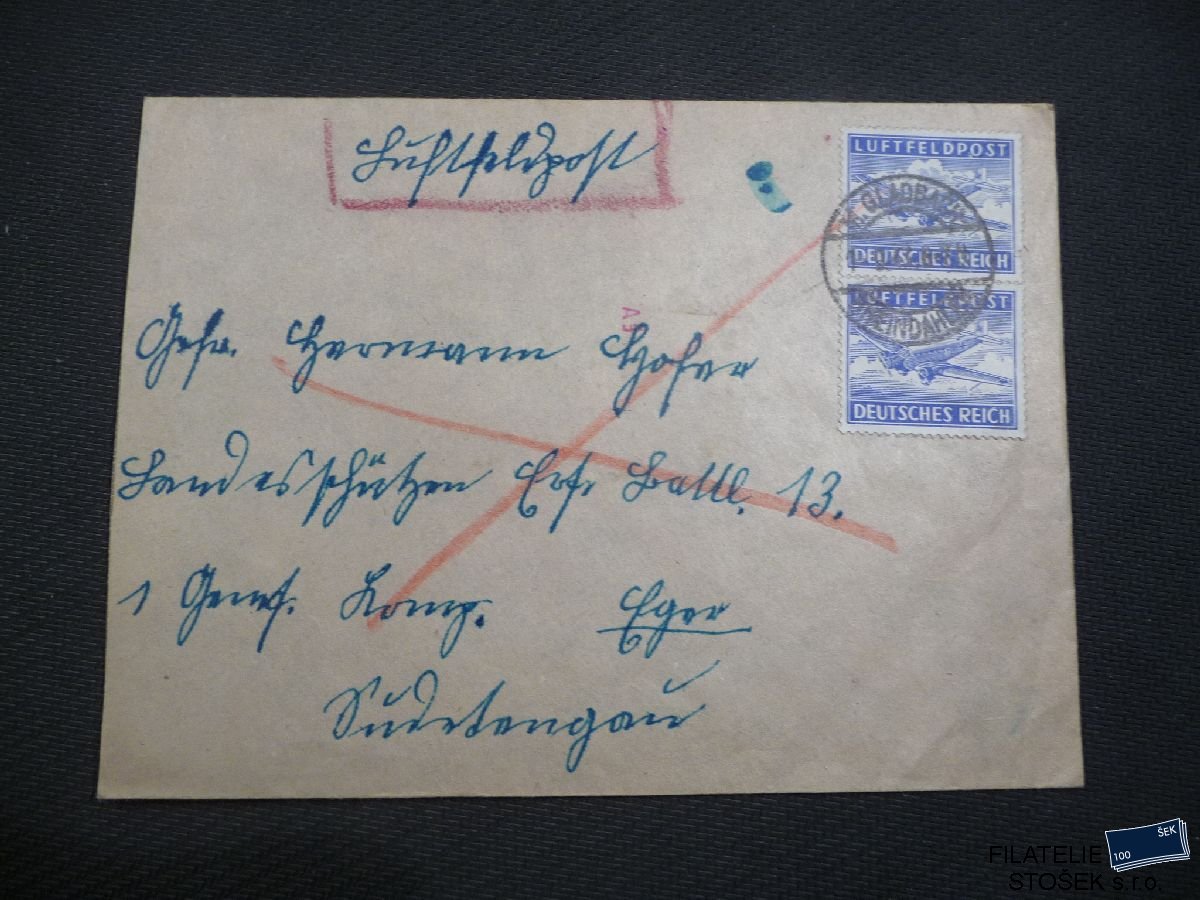 Luftfeldpost
LUFTFELDPOST
DEUTSCHES REICH
LUFTFELDPOST
DEUTSCHES REICH
Gefr. Hermann Hofer
Landesschützen Ers. Batll. 13.
1 Genes. Komp. Eger
Sudetengau
100 ŠEK
FILATELIE
STOŠEK s.r.o.